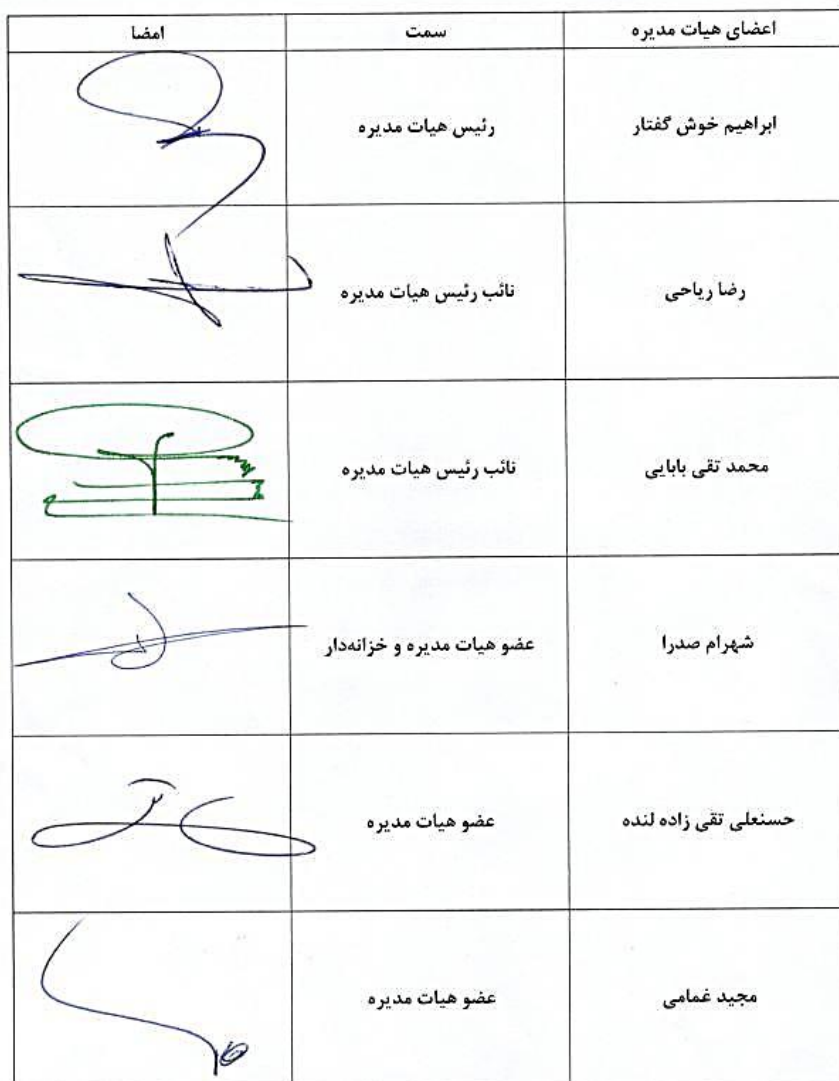 اعضای هیات مدیره سمت امضا
ابراهیم خوش گفتار رئیس هیات مدیره
رضا ریاحی نائب رئیس هیات مدیره
محمد تقی بابایی نائب رئیس هیات مدیره
شهرام صدرا عضو هیات مدیره و خزانه‌دار
حسنعلی تقی زاده لنده عضو هیات مدیره
مجید غمامی عضو هیات مدیره